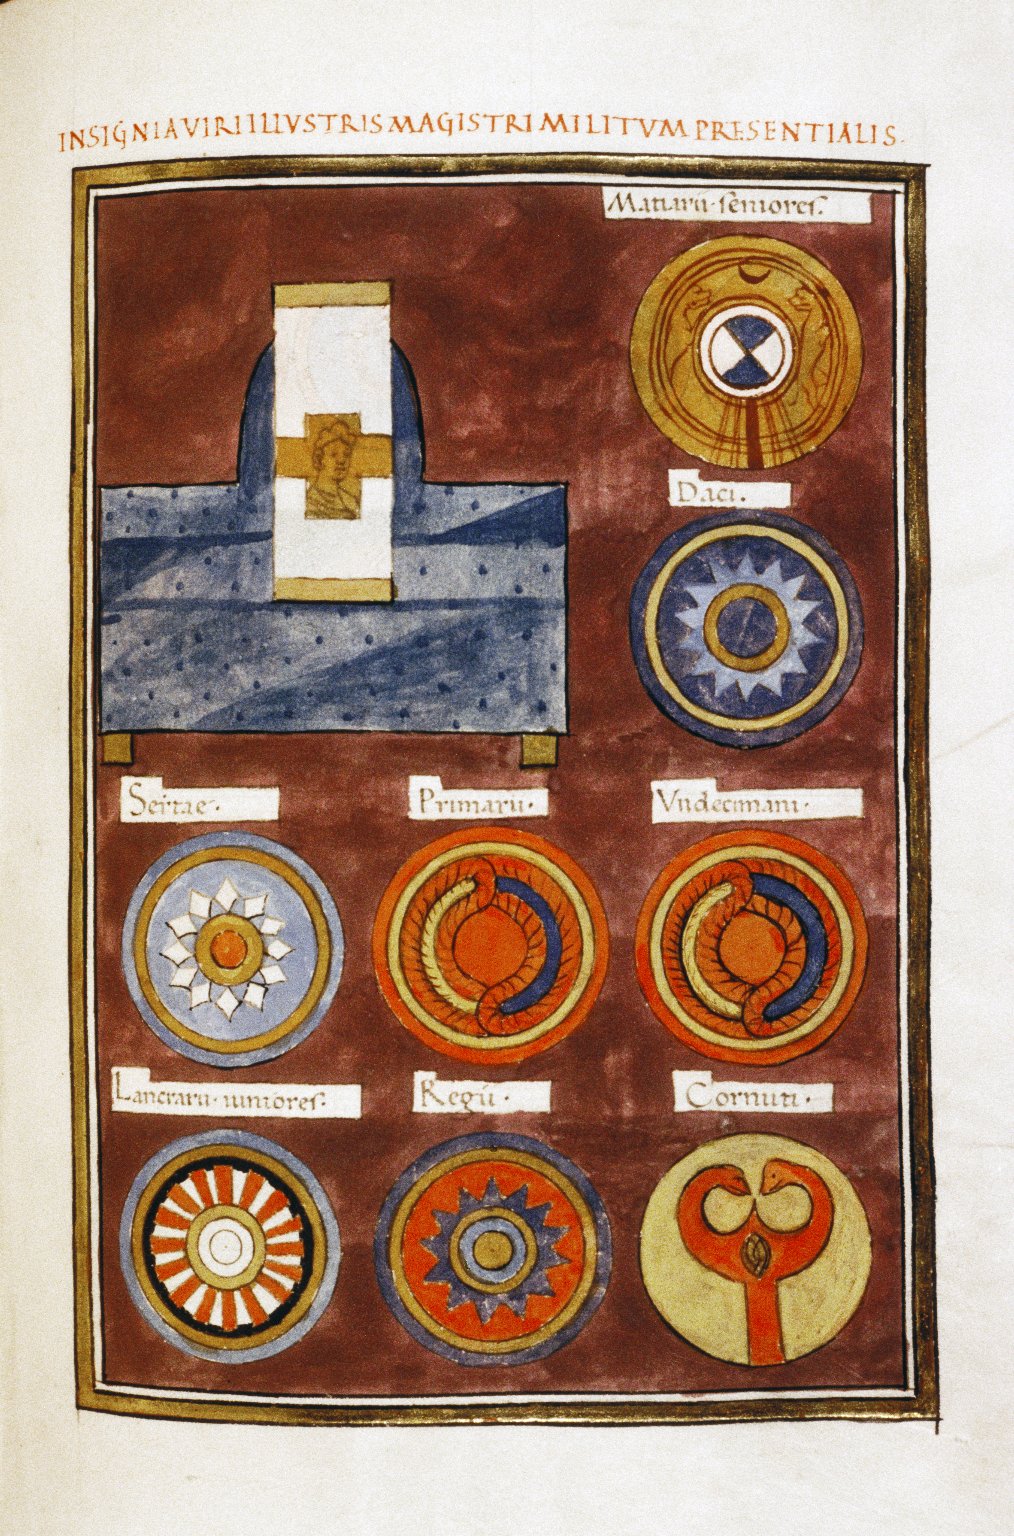 INSIGNIA VIRI ILLVSTRIS MAGISTRI MILITVM PRESENTIALIS.
Mattiarii·seniores.
Daci.
Scitae·
Primarii·
Vndecimani·
Lanciarii·iuniores.
Regii·
Cornuti·